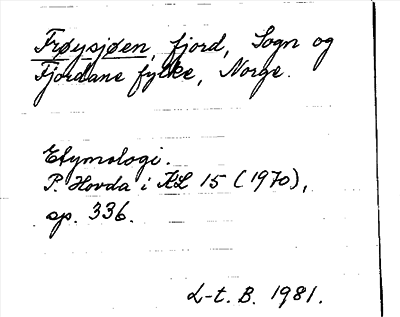 Frøysjøen, fjord, Sogn og
Fjordane fylke, Norge.
Etymologi.
P. Hovda i KL 15 (1970),
sp. 336.
L-t. B. 1981.